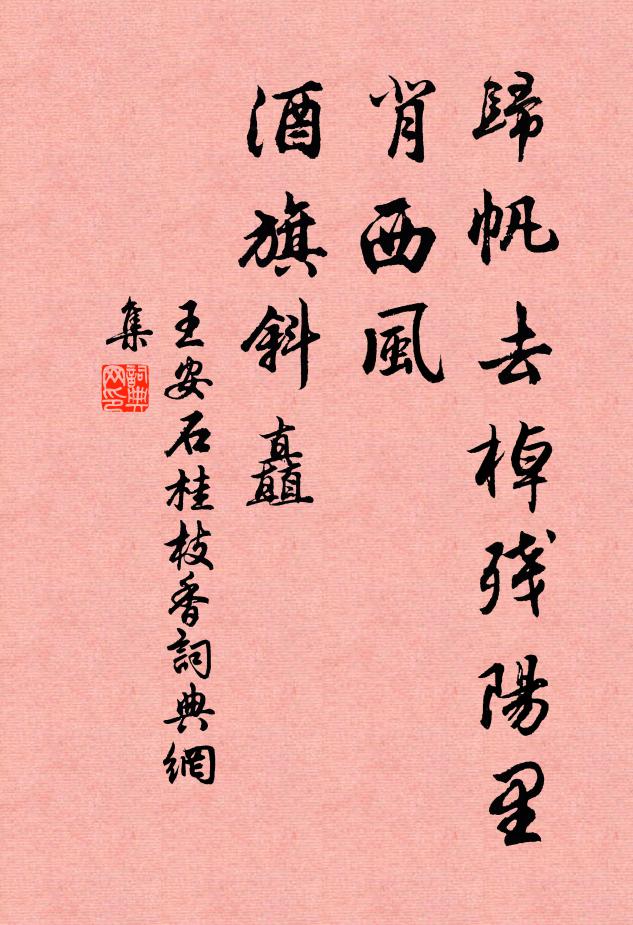 歸帆去棹残陽里
背西風
酒旗斜矗
王安石桂枝香詞典網
集
詞典网印